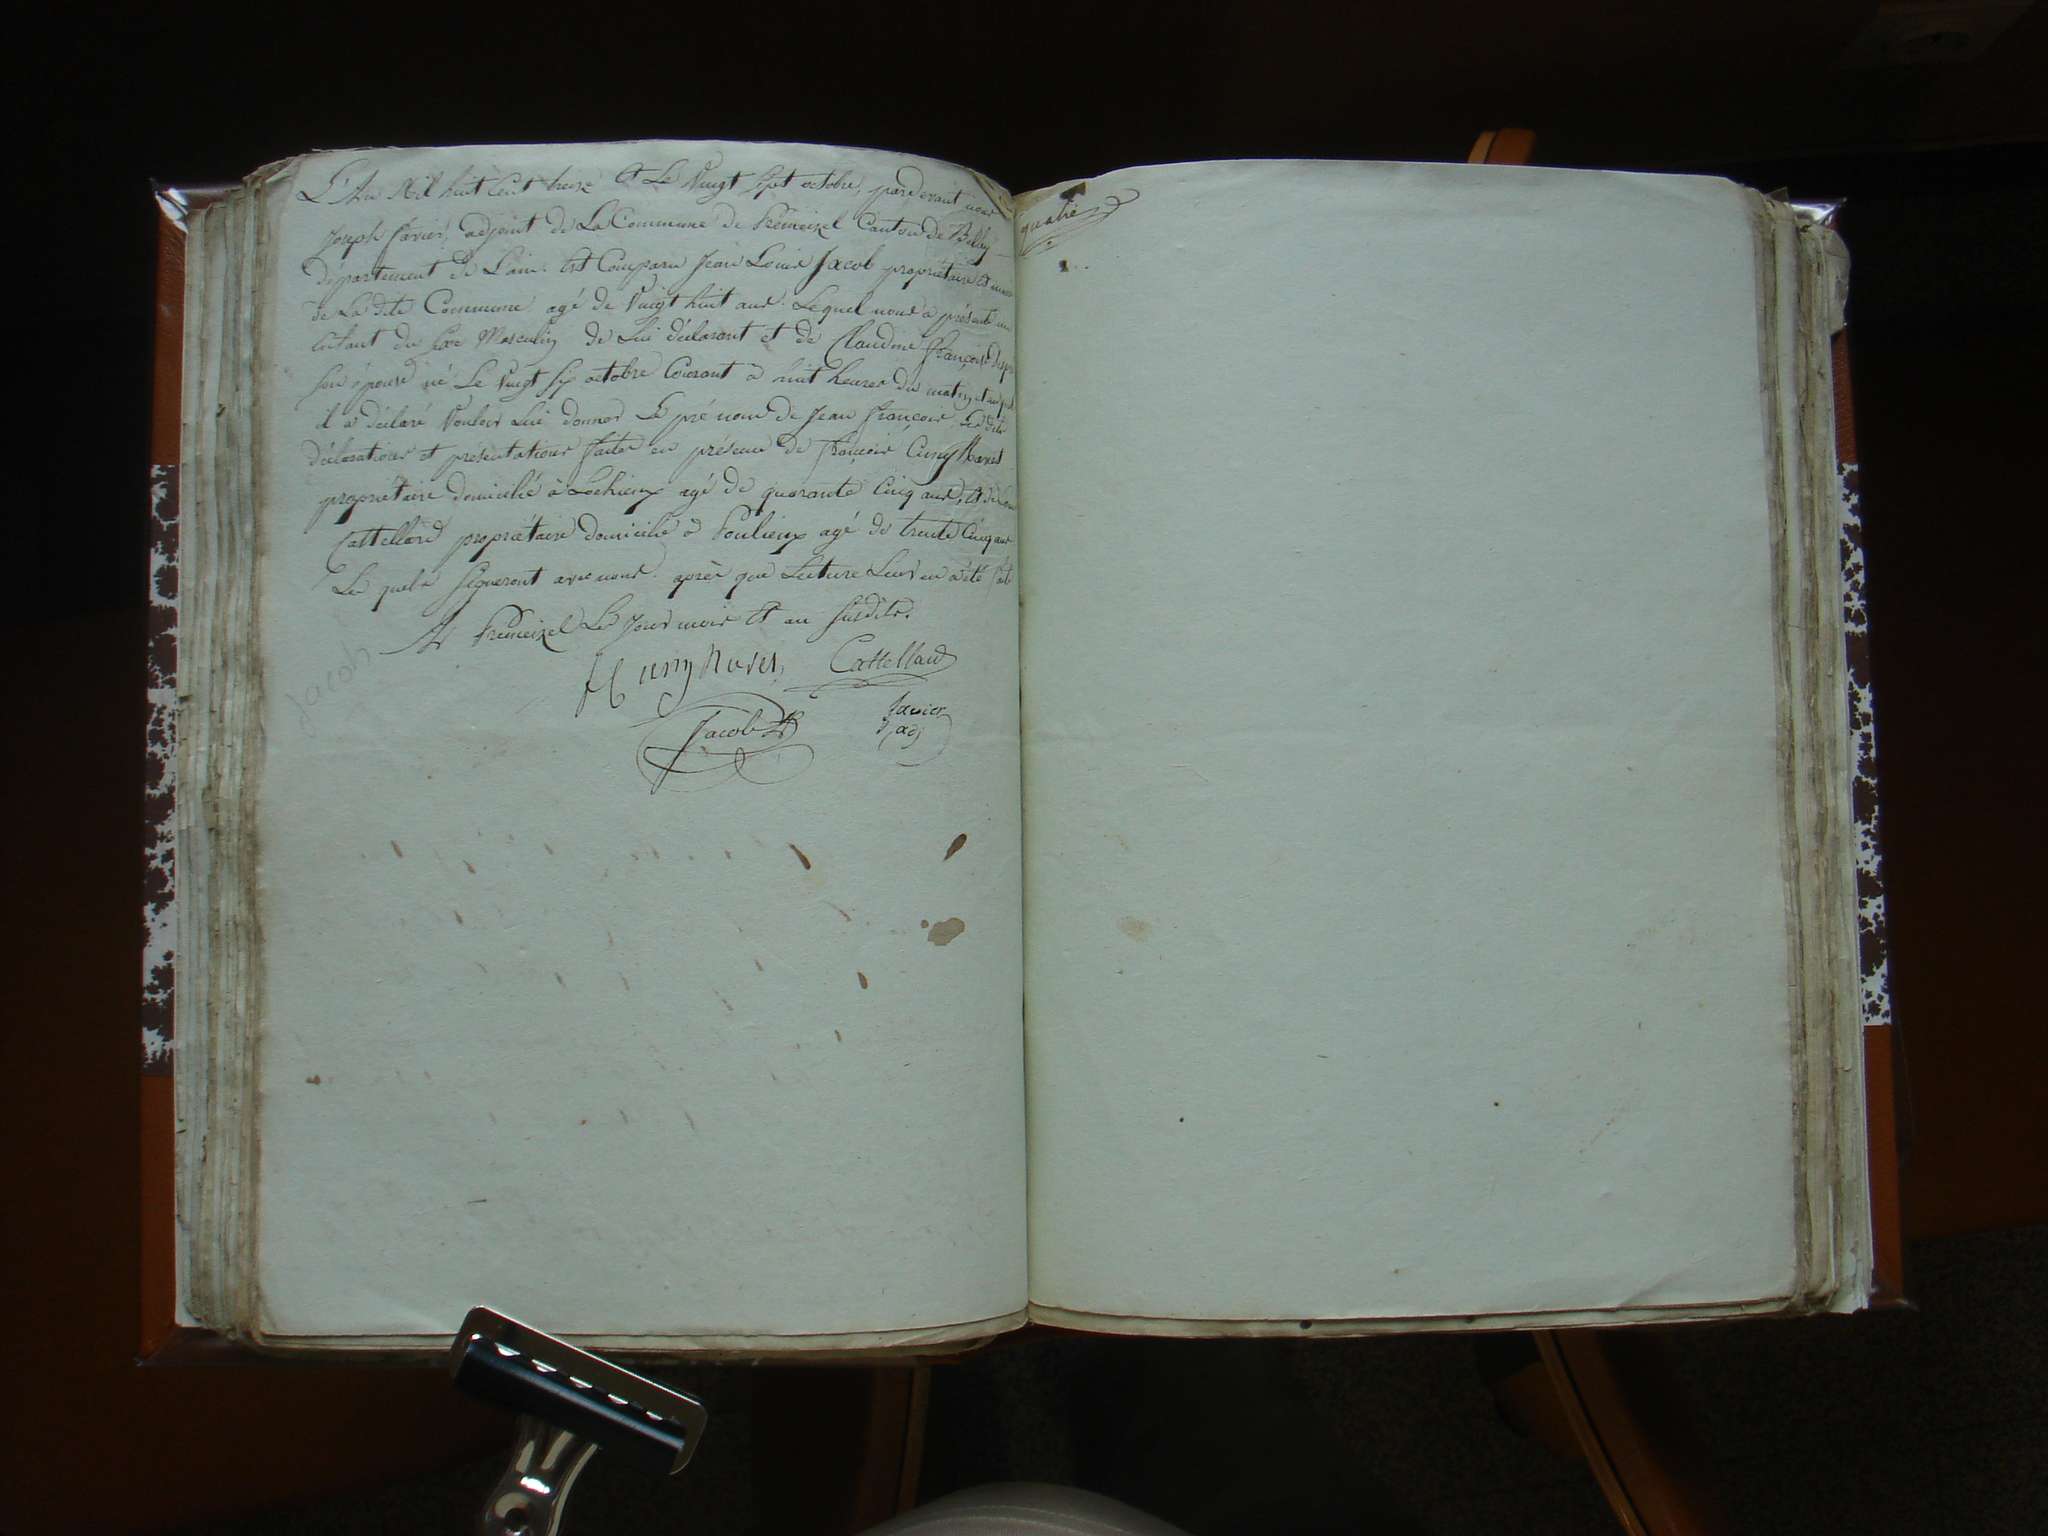 L'An Mil huit Cent treize Et Le Vingt Sept octobre, pardevant nous
Joseph Savier, adjoint de La Commune de Premeizel Canton de Belley
département de L'ain. Est Comparu Jean Louis Jacob propriétaire Et
de La dite Commune agé de Vingt huit ans. Lequel nous a présenté un
Enfant du Sexe Masculin de Lui déclarant et de Claudine françoise
Son épouse né Le Vingt Six octobre Courant à huit heures du matin, et
il a déclaré Vouloir Lui donner Le pré nom de Jean françois, Les dites
déclarations et présentations faites en présence de françois Cuny
propriétaire domicilié à Lochieux agé de quarante Cinq ans, Et de
Cattelland propriétaire domicilié à agé de trente Cinq ans
Les quels Signeront avec nous. après que Lecture Leur en a été faite
A Premeizel Le Jour mois Et an Susdits.
Cuny Cattelland
Jacob Savier
adj
Jacob
quatre